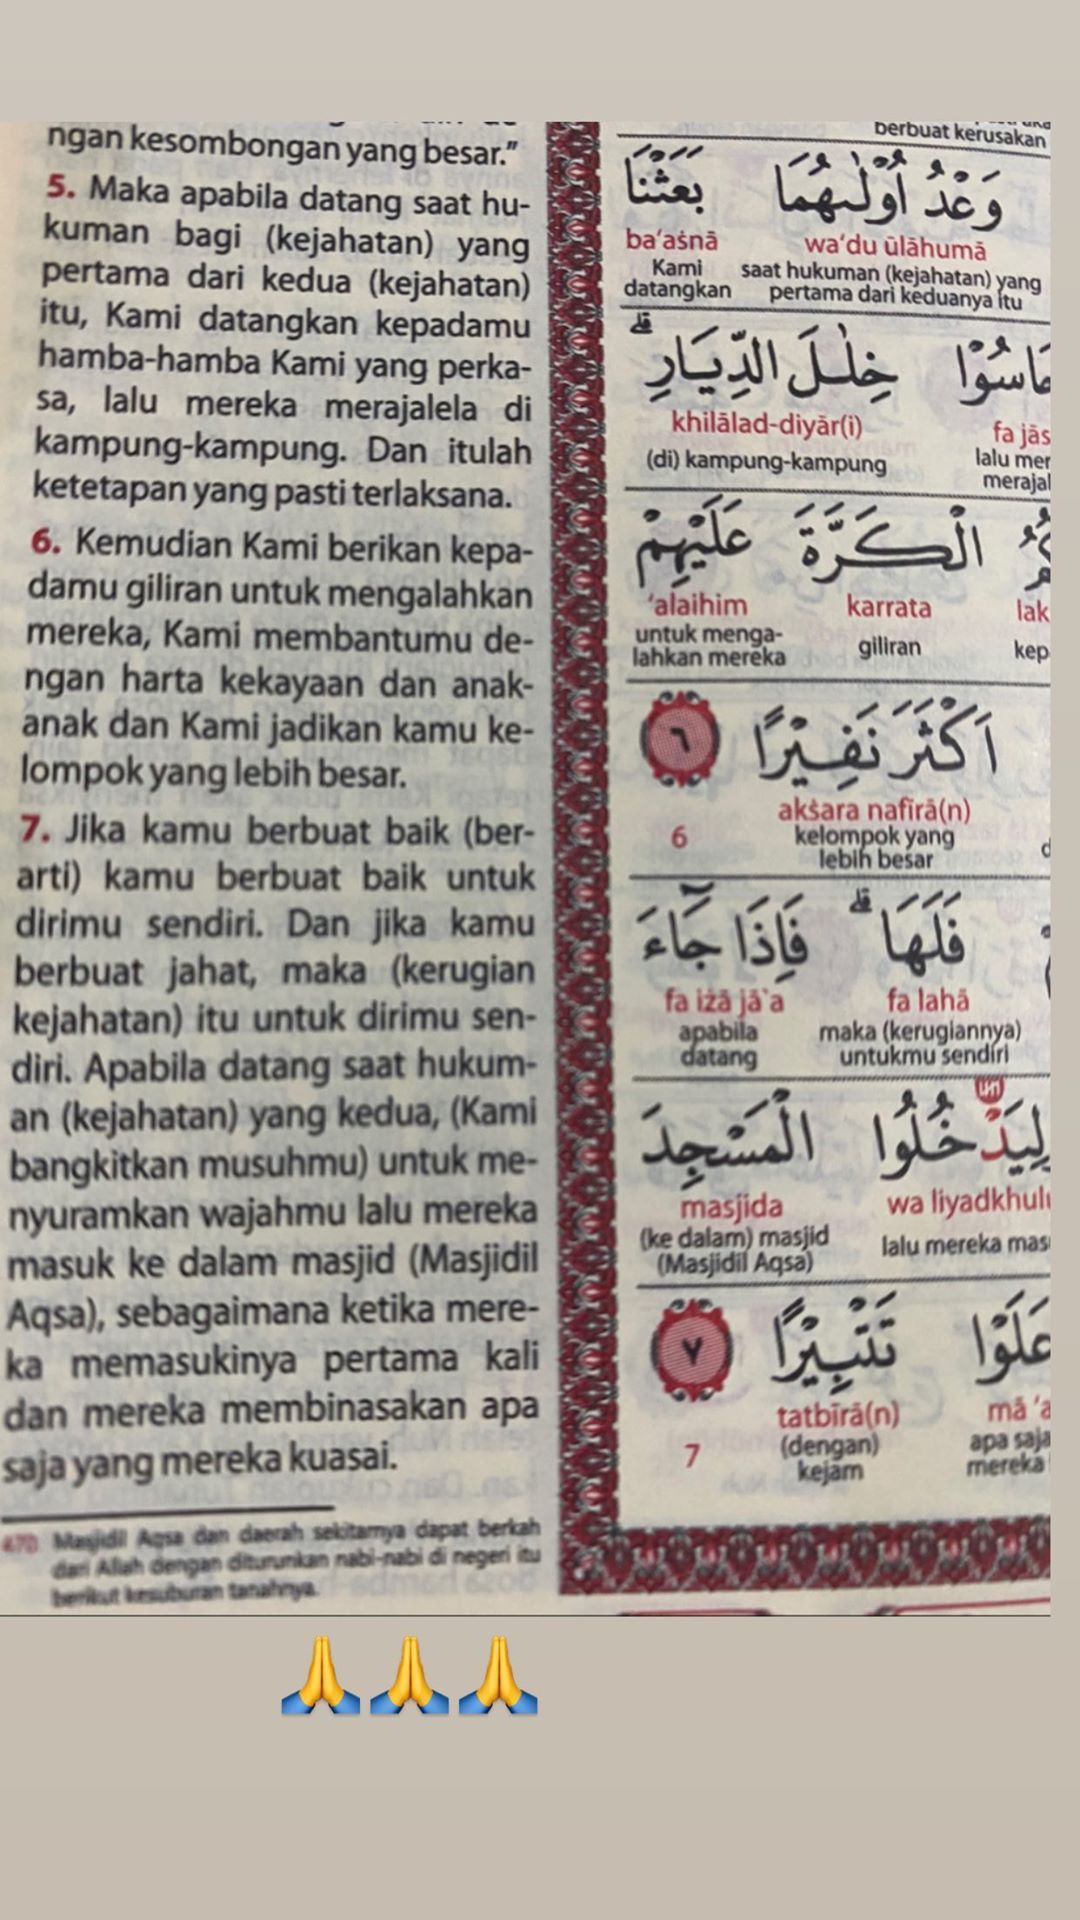 ngan kesombongan yang besar."
5. Maka apabila datang saat hu-
kuman bagi (kejahatan) yang
pertama dari kedua (kejahatan)
itu, Kami datangkan kepadamu
hamba-hamba Kami yang perka-
sa, lalu mereka merajalela di
kampung-kampung. Dan itulah
ketetapan yang pasti terlaksana.
6. Kemudian Kami berikan kepa-
damu giliran untuk mengalahkan
mereka, Kami membantumu de-
ngan harta kekayaan dan anak-
anak dan Kami jadikan kamu ke-
lompok yang lebih besar.
7. Jika kamu berbuat baik (ber-
arti) kamu berbuat baik untuk
dirimu sendiri. Dan jika kamu
berbuat jahat, maka (kerugian
kejahatan) itu untuk dirimu sen-
diri. Apabila datang saat hukum-
an (kejahatan) yang kedua, (Kami
bangkitkan musuhmu) untuk me-
nyuramkan wajahmu lalu mereka
masuk ke dalam masjid (Masjidil
Aqsa), sebagaimana ketika mere-
ka memasukinya pertama kali
dan mereka membinasakan apa
saja yang mereka kuasai.
470 Masjidil Aqsa dan daerah sekitarnya dapat berkah
dari Allah dengan diturunkan nabi-nabi di negeri itu
berikut kesuburan tanahnya.
berbuat kerusakan
وَعْدُ اُوْلٰىهُمَا بَعَثْنَا
ba‘aṡnā wa‘du ūlāhumā
Kami saat hukuman (kejahatan) yang
datangkan pertama dari keduanya itu
خِلٰلَ الدِّيَارِۗ
khilālad-diyār(i) fa jās
(di) kampung-kampung lalu mer
merajal
الْكَرَّةَ عَلَيْهِمْ
‘alaihim karrata lak
untuk menga- giliran kep
lahkan mereka
اَكْثَرَ نَفِيْرًا ٦
akṡara nafīrā(n)
6 kelompok yang
lebih besar
فَلَهَاۗ فَاِذَا جَاۤءَ
fa iżā jā`a fa lahā
apabila maka (kerugiannya)
datang untukmu sendiri
لِيَدْخُلُوا الْمَسْجِدَ
masjida wa liyadkhulu
(ke dalam) masjid lalu mereka mas
(Masjidil Aqsa)
عَلَوْا تَتْبِيْرًا ٧
tatbīrā(n) mā ‘a
7 (dengan) apa saja
kejam mereka